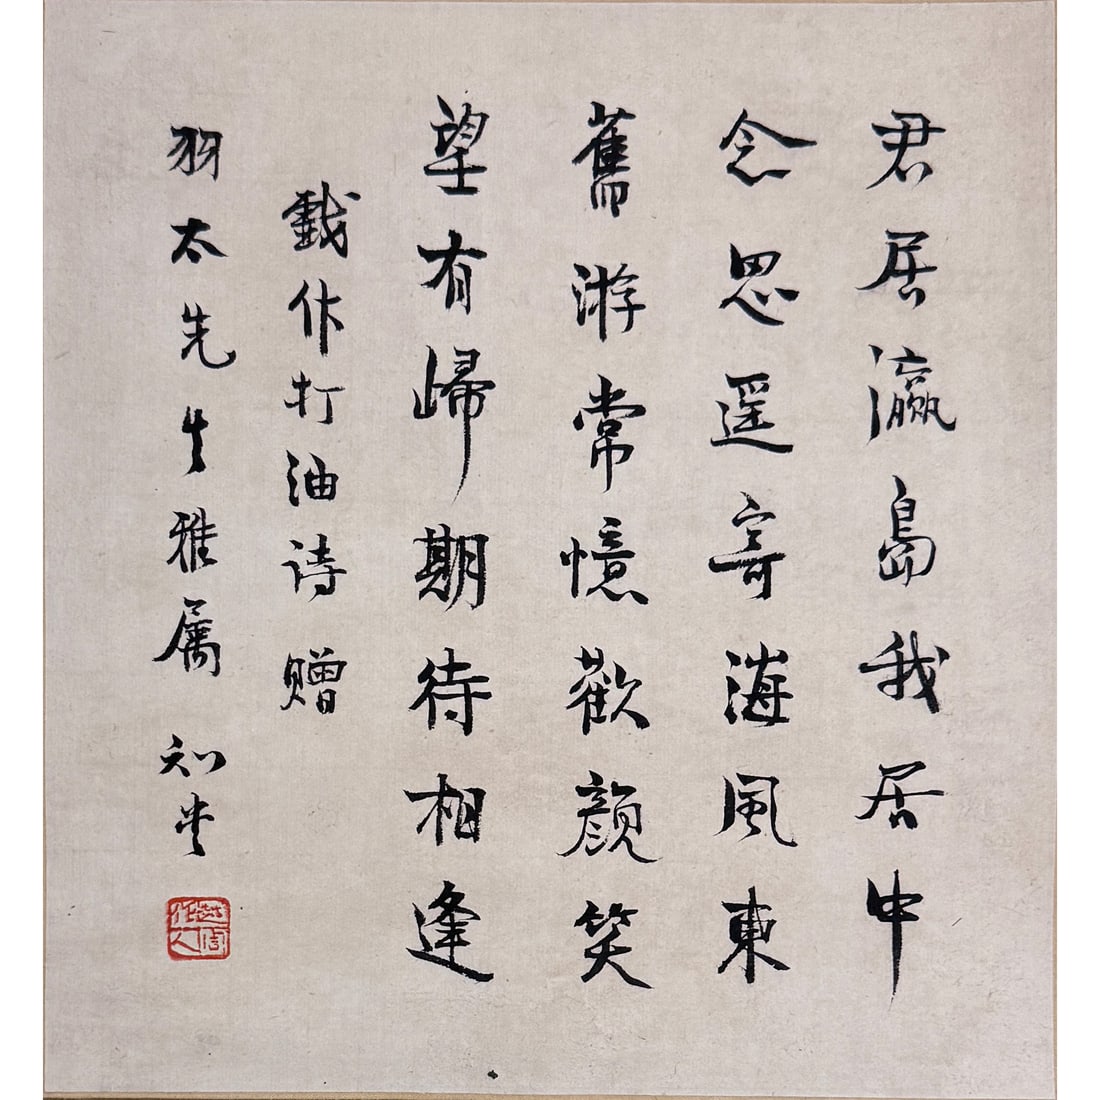 君居瀛島我居中
念思遥寄海風東
舊游常憶歡顔笑
望有歸期待相逢
戲作打油诗赠
羽太先生雅属 知堂
越周作人